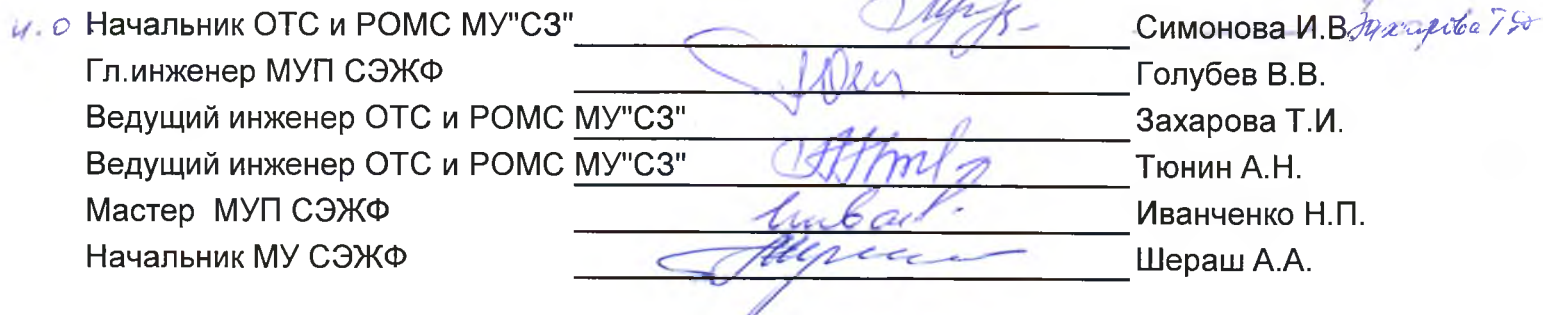 и.о Начальник ОТС и РОМС МУ"СЗ" Симонова И.В. Захарова Т.И.
Гл.инженер МУП СЭЖФ Голубев В.В.
Ведущий инженер ОТС и РОМС МУ"СЗ" Захарова Т.И.
Ведущий инженер ОТС и РОМС МУ"СЗ" Тюнин А.Н.
Мастер МУП СЭЖФ Иванченко Н.П.
Начальник МУ СЭЖФ Шераш А.А.